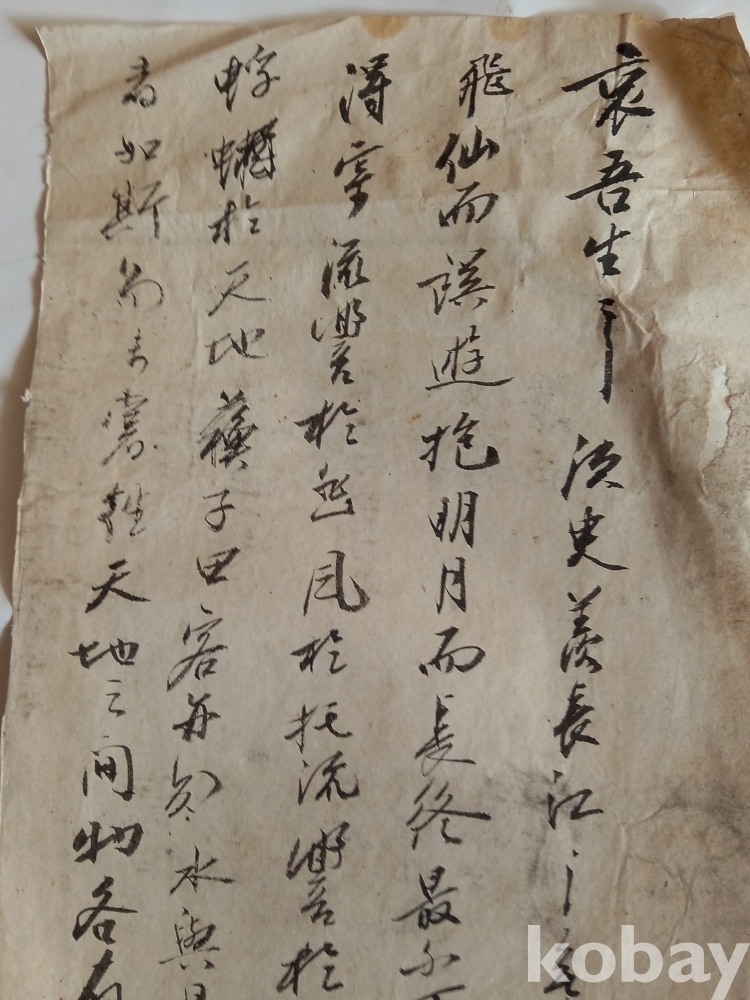 哀吾生之須史羨長江之
飛仙而誤遊抱明月而長終最不
淂 流響於悲風於托流響於
蜉 於天地蘓子曰客亦知水與
者如斯而未嘗往天地之間物各有
kobay